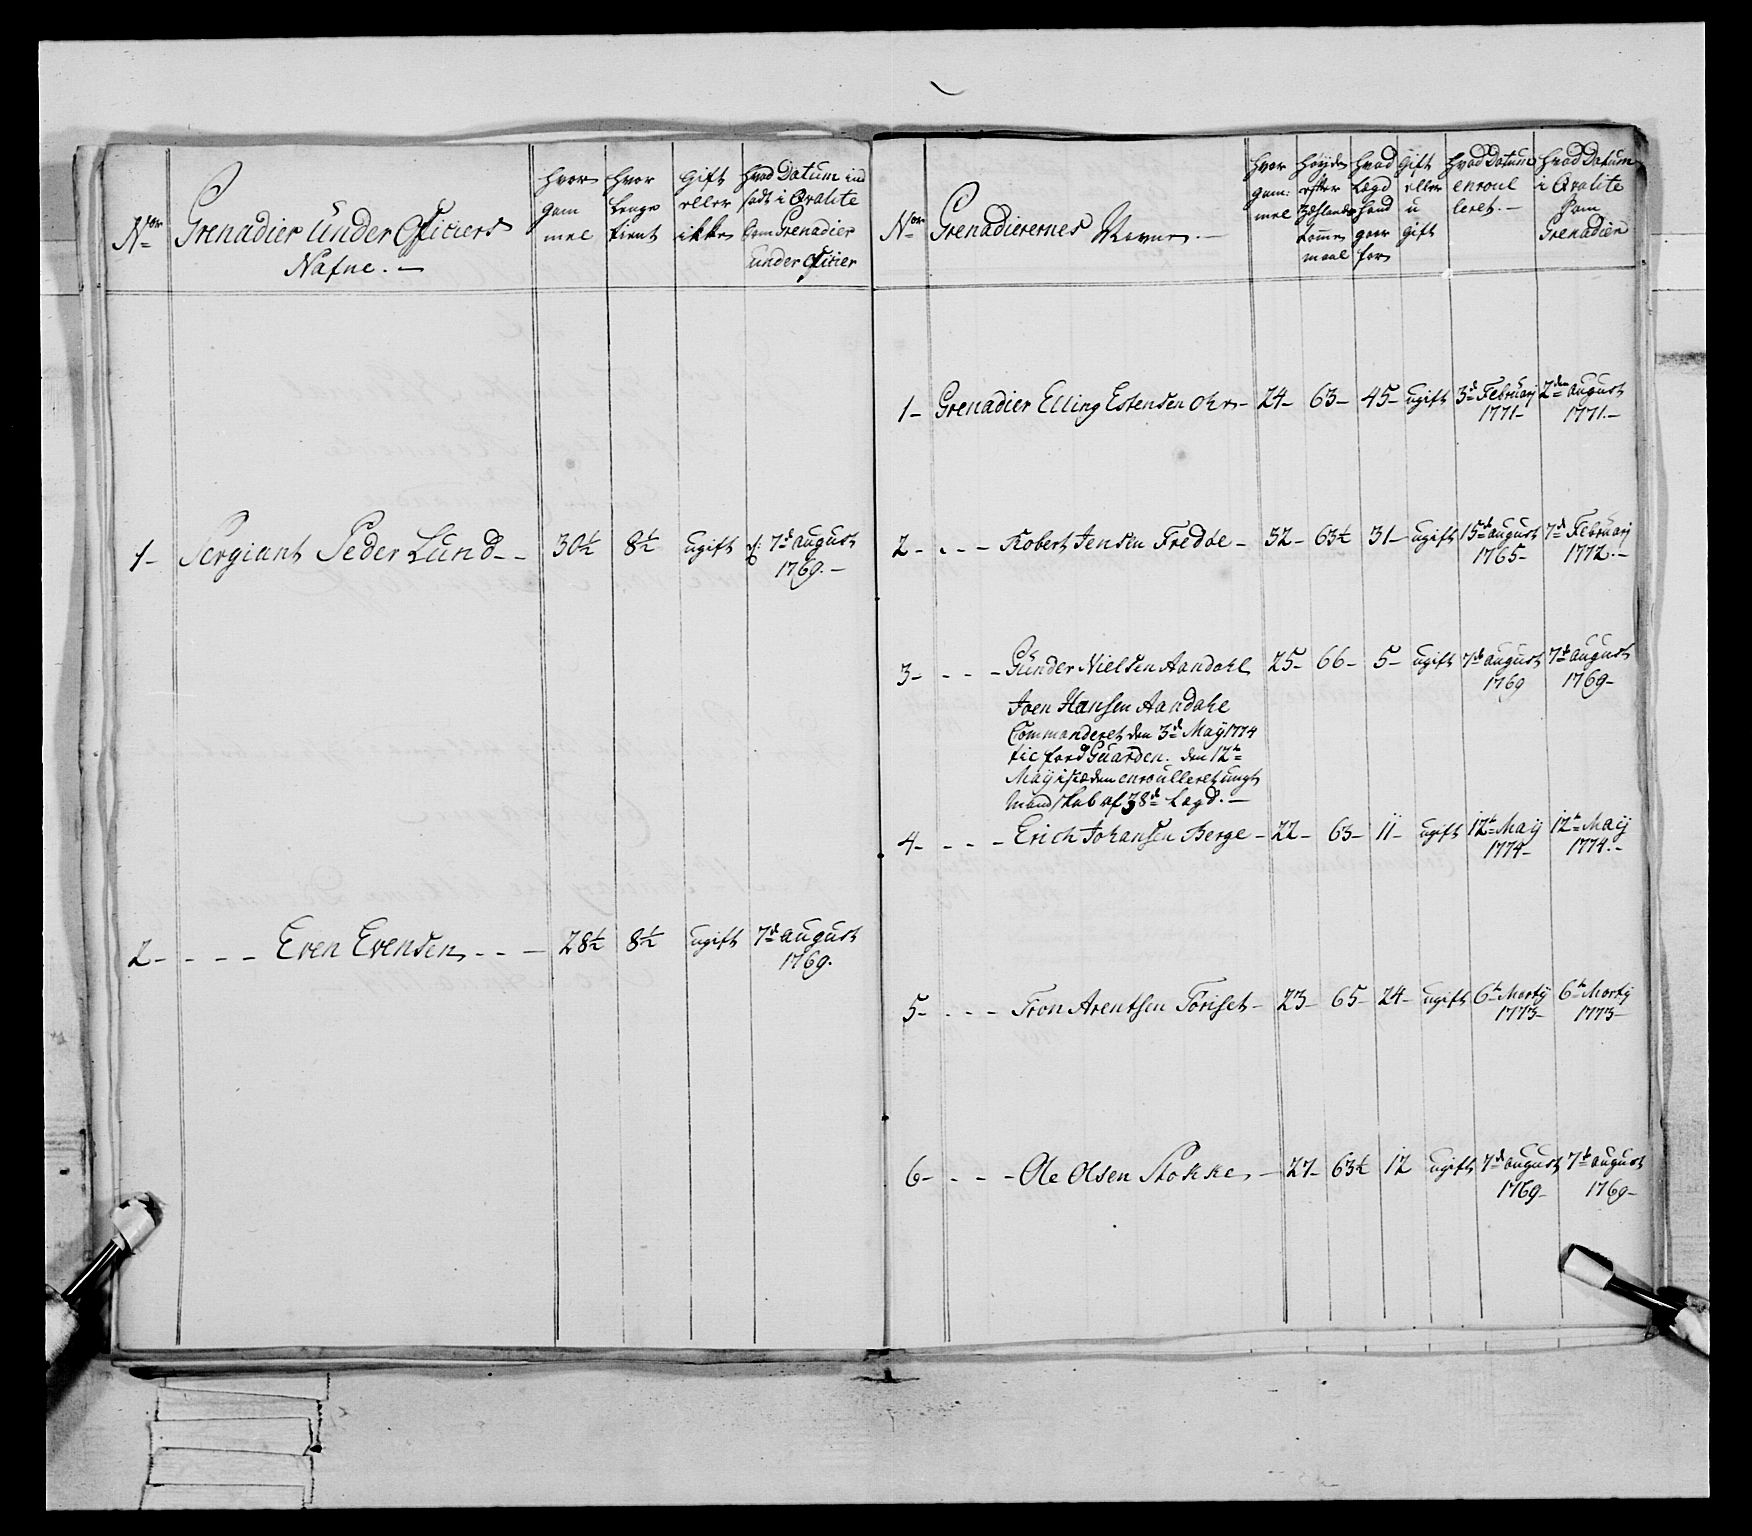 Nor
Grenadier Under Officiers
Nafne. —
hvor
gam
mel
hvor
lenge
tient
gift
eller
ikke
hvad Datum ind
sadt i Qvalite
som Grenadier
under Officier
1- Sergiant Peder Lund - - 30½ 8½ ugift 7de august
1769. —
2- - - - Even Evensen - - - 28½ 8½ ugift 7de august
1769.
Nor
Grenadierernes Navne. —
hvor
gam:
mel
høyde
efter
Sælands
tomme
maal
hvad
Lægd
hand
goer
for
Gift
eller
u
gift
hvad Datum
enroul
leret. —
hvad Datum
i Qvalite
som
Grenadier
1- Grenadier Elling Estensen Ohr - 24- 63- 45- ugift 3de Februarij 2den august
1771- 1771. —
2- - - - Robert Jensen Fredbe - 32- 63½ 31- ugift 15de august 7de Februarij
1765- 1772. —
3- - - - Gunder Nielsen Aandahl 25- 66- 5- ugift 7de august 7de august
1769 1769-
Joen Hansen Aandahl
Commanderet den 3de Maij 1774
til fods Guarden. den 12te
Maij isteden enroulleret ungt
Mandskab af 38de Lægd. —
4- - - - Erich Johansen Berge - 22- 63- 11- ugift 12te Maij 12te Maij
1774- 1774. -
5- - - - Tron Arentsen Toriset - 23- 65- 24- ugift 6te Martij 6te Martij
1773- 1773-
6- - - - Ole Olsen Stokke - 27- 63½ 12 ugift 7de august 7de august
1769- 1769-